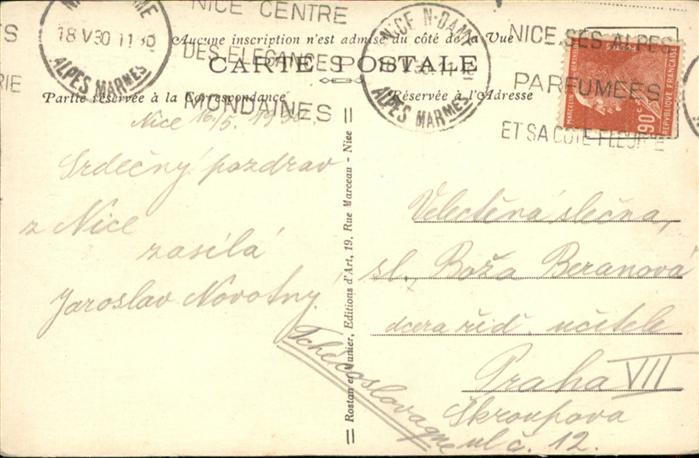 NICE CENTRE
DES ELEGANCES
MONDAINES
18 V 30 11 30
ALPES MARMES
NICE N-DAME
ALPES MARMES
NICE SES ALPES
PARFUMEES
ET SA COTE FLEURIE
Aucune inscription n'est admise du côté de la Vue
CARTE POSTALE
Partie réservée à la Correspondance
Réservée à l'Adresse
90c
REPUBLIQUE FRANÇAISE
Nice 16/5. 1930.
Srdečný pozdrav
z Nice
zasílá
Jaroslav Novotný.
Rostan et Munier, Editions d'Art, 19, Rue Marceau - Nice
Velectěná slečna,
sl. Boža Beranová
dcera říd. učitele
Praha VII
Škroupova
ul č. 12.
Tchécoslovaquie